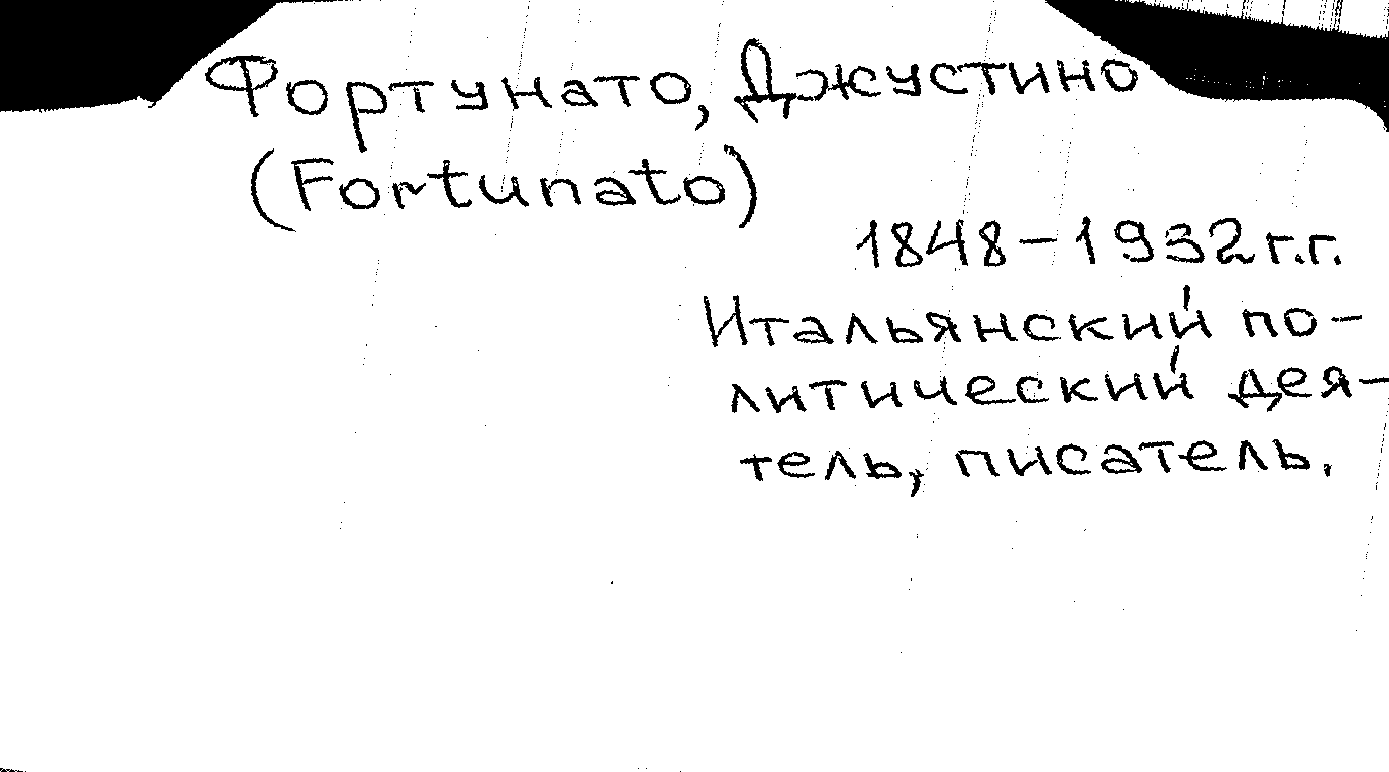 Фортунато, Джустино
(Fortunato)
1848-1932 г.г.
Итальянский по-
литический дея-
тель, писатель.